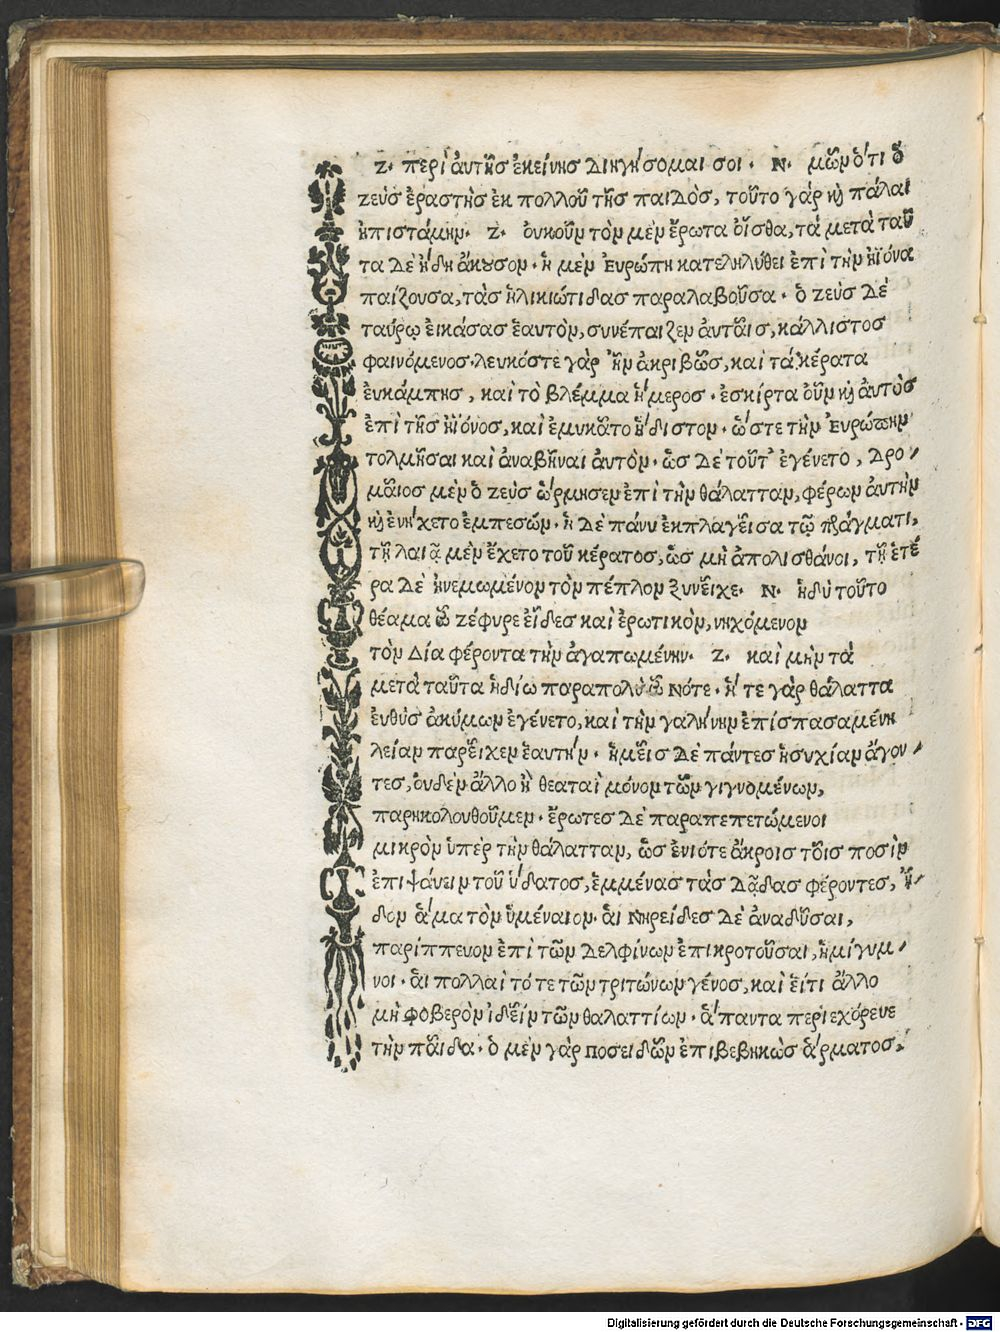 Ζ· περὶ ἀυτῆσ ἐκείνησ διηγήσομαι σοι· Ν· μῶν ὅτι ὁ
ζεὺσ ἐραστὴσ ἐκ πολλοῦ τῆσ παιδὸσ, τοῦτο γάρ κỳ πάλαι
ἠπιστάμην· Ζ· ὀυκοῦν τὸν μὲν ἔρωτα ὄισθα, τὰ μετὰ ταῦ
τα δὲ ἤδη ἄκουσον· ἡ μὲν Ἐυρώπη κατεληλύθει ἐπὶ τὴν ἠϊόνα
παίζουσα, τὰσ ἡλικιώτιδασ παραλαβοῦσα· ὁ ζεὺσ δὲ
ταύρῳ ἐικάσασ ἑαυτὸν, συνέπαιζεν ἀυτᾶισ, κάλλιστοσ
φαινόμενοσ· λευκόστε γὰρ ἦν ἀκριβῶσ, καὶ τὰ κέρατα
ἐυκάμπησ, καὶ τὸ βλέμμα ἥμεροσ· ἐσκίρτα ὀῦν κỳ ἀυτὸσ
ἐπὶ τῆσ ἠϊόνοσ, καὶ ἐμυκᾶτο ἥδιστον· ὥστε τὴν Ἐυρώπην
τολμῆσαι καὶ ἀναβῆναι ἀυτὸν· ὡσ δὲ τοῦτ' ἐγένετο, δρο-
μᾶιοσ μὲν ὁ ζεὺσ ὥρμησεν ἐπὶ τὴν θάλατταν, φέρων ἀυτὴν
κỳ ἐνήχετο ἐμπεσών· ἡ δὲ πάνυ ἐκπλαγεῖσα τῷ πράγματι,
τῇ λαιᾷ μὲν ἔχετο τοῦ κέρατοσ, ὡσ μὴ ἀπολισθάνοι, τῇ ἑτέ
ρα δὲ ἠνεμωμένον τὸν πέπλον ξυνεῖχε· Ν· ἡδὺ τοῦτο
θέαμα ὦ ζέφυρε ἐῖδεσ καὶ ἐρωτικὸν, νηχόμενον
τὸν Δία φέροντα τὴν ἀγαπωμένην· Ζ· καὶ μὴν τὰ
μετὰ ταῦτα ἡδίω παραπολὺ ὦ Νότε· ἥ τε γὰρ θάλαττα
ἐυθὺσ ἀκύμων ἐγένετο, καὶ τὴν γαλήνην ἐπισπασαμένη
λείαν παρεῖχεν ἑαυτήν· ἡμεῖσ δὲ πάντεσ ἡσυχίαν ἄγον-
τεσ, ὀυδὲν ἄλλο ἢ θεαταὶ μόνον τῶν γιγνομένων,
παρηκολουθοῦμεν· ἔρωτεσ δὲ παραπεπετώμενοι
μικρὸν ὑπὲρ τὴν θάλατταν, ὡσ ἐνιότε ἄκροισ τοῖσ ποσὶν
ἐπιψάυειν τοῦ ὕδατοσ, ἑμμένασ τὰσ δᾷδασ φέροντεσ, ἦ-
δον ἅμα τὸν ὑμέναιον· ἁι Νηρείδεσ δὲ ἀναδῦσαι,
παρίππευον ἐπὶ τῶν δελφίνων ἐπικροτοῦσαι, ἡμίγυμ-
νοι· ἁι πολλαὶ τό τε τῶν τριτώνων γένοσ, καὶ ἔιτι ἄλλο
μὴ φοβερὸν ἰδεῖν τῶν θαλαττίων· ἅπαντα περιεχόρευε
τὴν παῖδα· ὁ μὲν γὰρ ποσειδῶν ἐπιβεβηκὼσ ἅρματοσ,
Digitalisierung gefördert durch die Deutsche Forschungsgemeinschaft - DFG